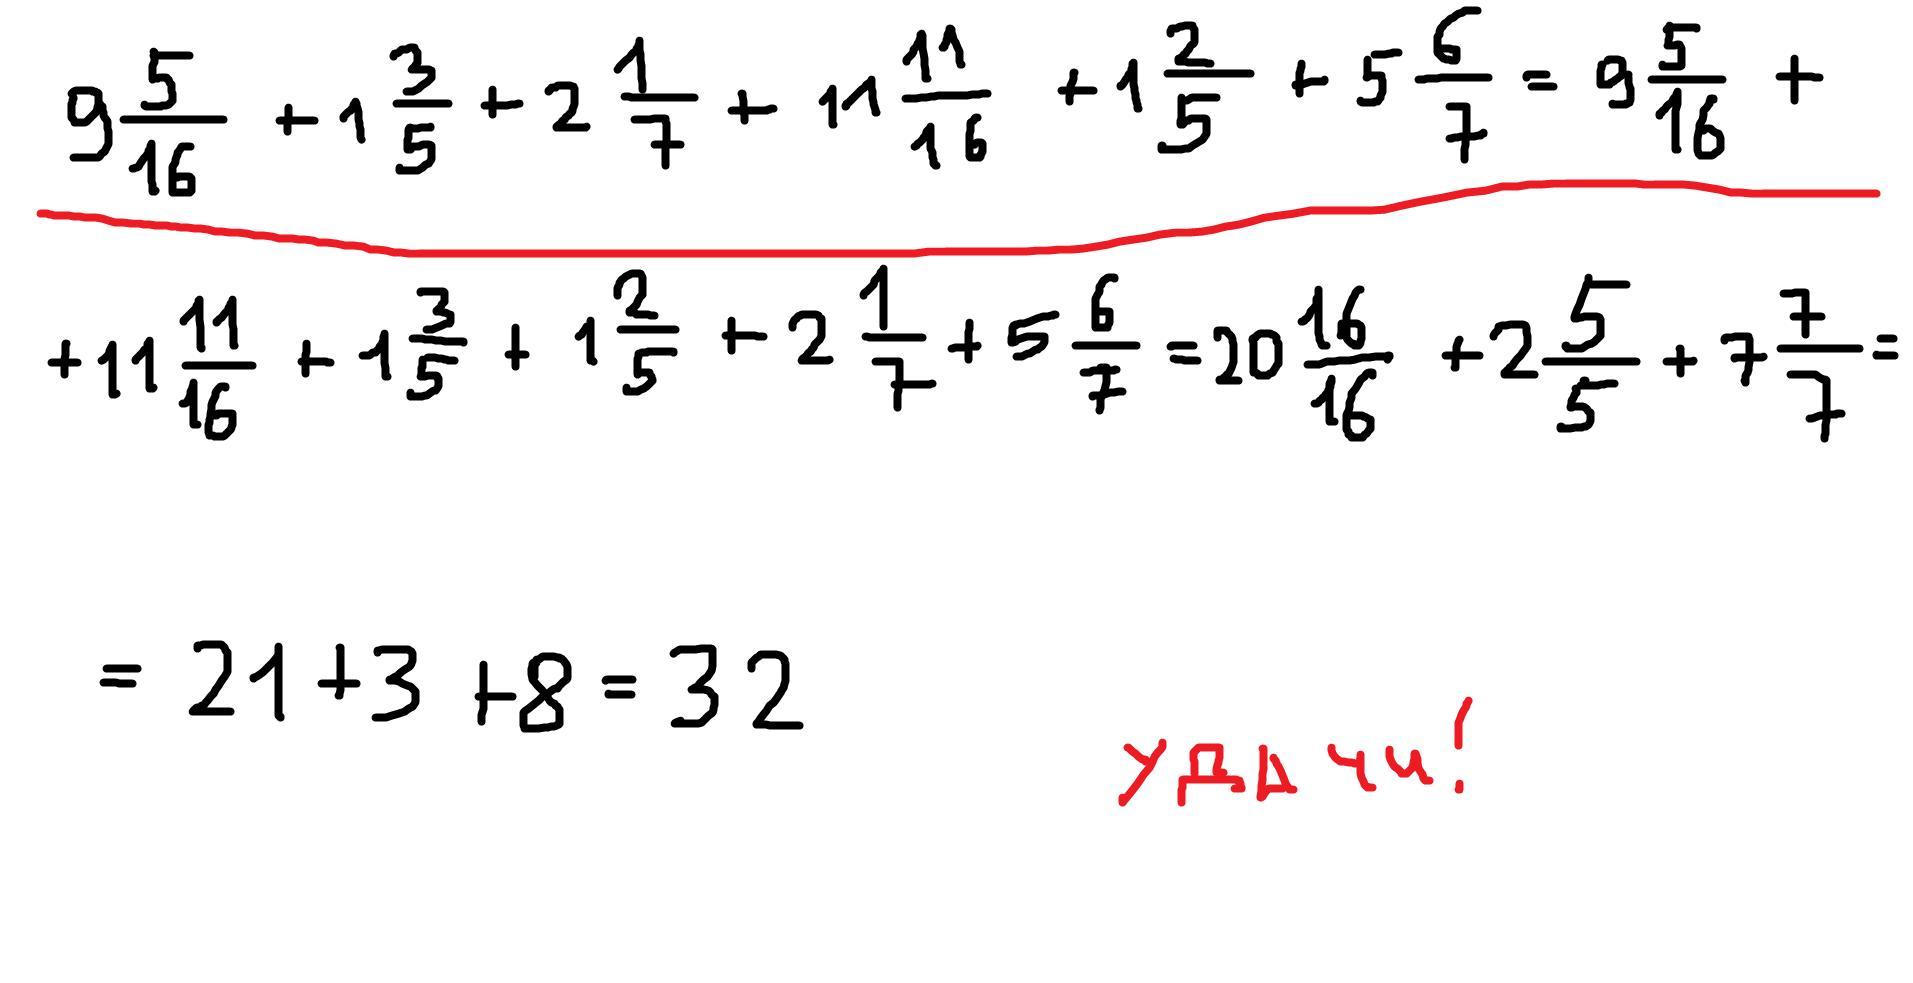 9 5/16 + 1 3/5 + 2 1/7 + 11 11/16 + 1 2/5 + 5 6/7 = 9 5/16 +
+ 11 11/16 + 1 3/5 + 1 2/5 + 2 1/7 + 5 6/7 = 20 16/16 + 2 5/5 + 7 7/7 =
= 21 + 3 + 8 = 32
удачи!